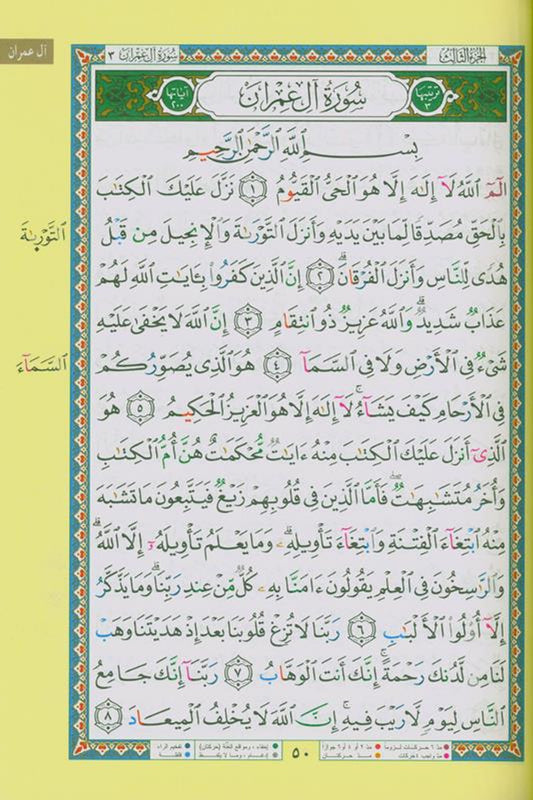 آل عمران
الجزء الثالث
سورة آل عمران ٣
ترتيبها ٣
سُورَةُ آلِ عِمْرَان
آياتها ٢٠٠
بِسْمِ اللَّهِ الرَّحْمَٰنِ الرَّحِيمِ
الٓمَٓ اللَّهُ لَآ إِلَٰهَ إِلَّا هُوَ الْحَيُّ الْقَيُّومُ ١ نَزَّلَ عَلَيْكَ الْكِتَٰبَ
بِالْحَقِّ مُصَدِّقًا لِّمَا بَيْنَ يَدَيْهِ وَأَنزَلَ التَّوْرَىٰةَ وَالْإِنجِيلَ مِن قَبْلُ
التَّوْرَىٰةَ
هُدًى لِّلنَّاسِ وَأَنزَلَ الْفُرْقَانَ ٢ إِنَّ الَّذِينَ كَفَرُوا۟ بِـَٔايَٰتِ اللَّهِ لَهُمْ
عَذَابٌ شَدِيدٌ ۗ وَاللَّهُ عَزِيزٌ ذُو انتِقَامٍ ٣ إِنَّ اللَّهَ لَا يَخْفَىٰ عَلَيْهِ
شَىْءٌ فِى الْأَرْضِ وَلَا فِى السَّمَآ ٤ هُوَ الَّذِى يُصَوِّرُكُمْ
السَّمَآءَ
فِى الْأَرْحَامِ كَيْفَ يَشَآءُ ۚ لَآ إِلَٰهَ إِلَّا هُوَ الْعَزِيزُ الْحَكِيمُ ٥ هُوَ
الَّذِىٓ أَنزَلَ عَلَيْكَ الْكِتَٰبَ مِنْهُ ءَايَٰتٌ مُّحْكَمَٰتٌ هُنَّ أُمُّ الْكِتَٰبِ
وَأُخَرُ مُتَشَٰبِهَٰتٌ ۖ فَأَمَّا الَّذِينَ فِى قُلُوبِهِمْ زَيْغٌ فَيَتَّبِعُونَ مَا تَشَٰبَهَ
مِنْهُ ابْتِغَآءَ الْفِتْنَةِ وَابْتِغَآءَ تَأْوِيلِهِ ۗ وَمَا يَعْلَمُ تَأْوِيلَهُۥٓ إِلَّا اللَّهُ ۗ
وَالرَّٰسِخُونَ فِى الْعِلْمِ يَقُولُونَ ءَامَنَّا بِهِۦ كُلٌّ مِّنْ عِندِ رَبِّنَا ۗ وَمَا يَذَّكَّرُ
إِلَّآ أُو۟لُوا۟ الْأَلْبَٰبِ ٦ رَبَّنَا لَا تُزِغْ قُلُوبَنَا بَعْدَ إِذْ هَدَيْتَنَا وَهَبْ
لَنَا مِن لَّدُنكَ رَحْمَةً ۚ إِنَّكَ أَنتَ الْوَهَّابُ ٧ رَبَّنَآ إِنَّكَ جَامِعُ
النَّاسِ لِيَوْمٍ لَّا رَيْبَ فِيهِ ۚ إِنَّ اللَّهَ لَا يُخْلِفُ الْمِيعَادَ ٨
مدّ ٦ حركات لزوماً مدّ ٢ أو ٤ أو ٦ جوازاً
إخفاء، ومواقع الغنّة (حركتان) تفخيم الراء
مدّ حركتان
إدغام، وما لا يلفظ قلقلة
٥٠